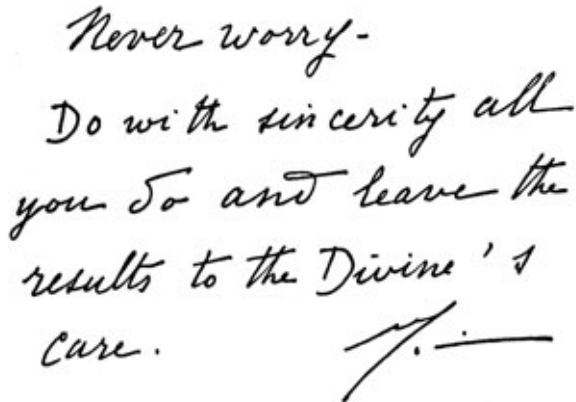 Never worry-
Do with sincerity all
you do and leave the
results to the Divine's
care.